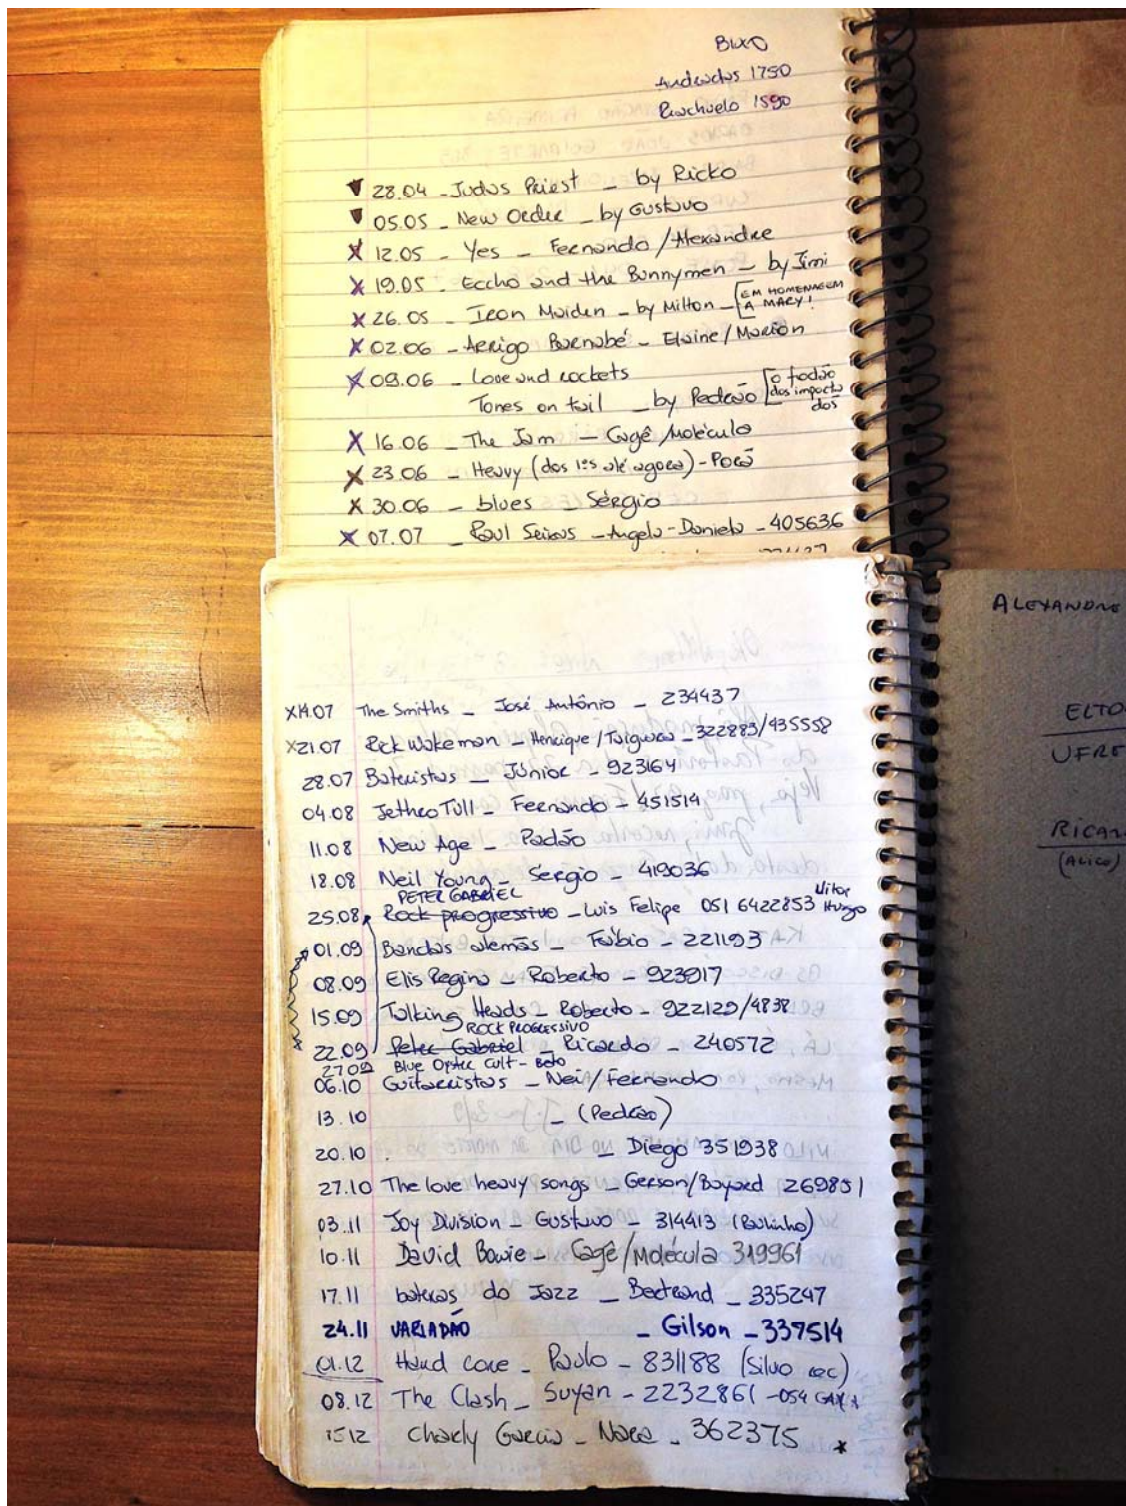 BIXO
Andradas 1750
Riachuelo 1590
28.04 - Judas Priest - by Ricko
05.05 - New Order - by Gustavo
X 12.05 - Yes - Fernando/Alexandre
X 19.05 - Eccho and the Bunnymen - by Jimi
X 26.05 - Iron Maiden - by Milton - [EM HOMENAGEM
A MARY!
X 02.06 - Arrigo Barnabé - Elaine/Marion
X 09.06 - Love and rockets
Tones on tail - by Pedrão [o fodão
dos importa
dos
X 16.06 - The Jam - Cagê/Molécula
X 23.06 - Heavy (dos 1ºs até agora) -
X 30.06 - blues - Sérgio
X 07.07 - Raul Seixas - Angelo-Daniela - 405636
X14.07 The Smiths - José Antônio - 234437
X21.07 Rick Wakeman - Henrique/Taiguara - 322883/435558
28.07 Bateristas - Júnior - 923164
04.08 Jethro Tull - Fernando - 451514
11.08 New Age - Padão
18.08 Neil Young - Sérgio - 419036
PETER GABRIEL
25.08 Rock progressivo - Luis Felipe 051 6422853 Vitor Hugo
01.09 Bandas alemãs - Fábio - 221193
08.09 Elis Regina - Roberto - 923917
15.09 Talking Heads - Roberto - 922129/4838
ROCK PROGRESSIVO
22.09 Peter Gabriel - Ricardo - 240572
27.09 Blue Oyster Cult - Beto
06.10 Guitarristas - Nei/Fernando
13.10 - (Pedrão)
20.10 - Diego 351938
27.10 The love heavy songs - Gerson/Bayard 269851
03.11 Joy Division - Gustavo - 314413 (Paulinho)
10.11 David Bowie - Cagê/Molécula 319961
17.11 bateras do Jazz - Bertrand - 335247
24.11 VARIADÃO - Gilson - 337514
01.12 Hard core - Paulo - 831188 (Silvo rec)
08.12 The Clash - Suyan - 2232861 - 054
15 12 Charly Garcia - Nara - 362375 *
ALEXANDRE
ELTO
UFR
RICAR
(ALICE)